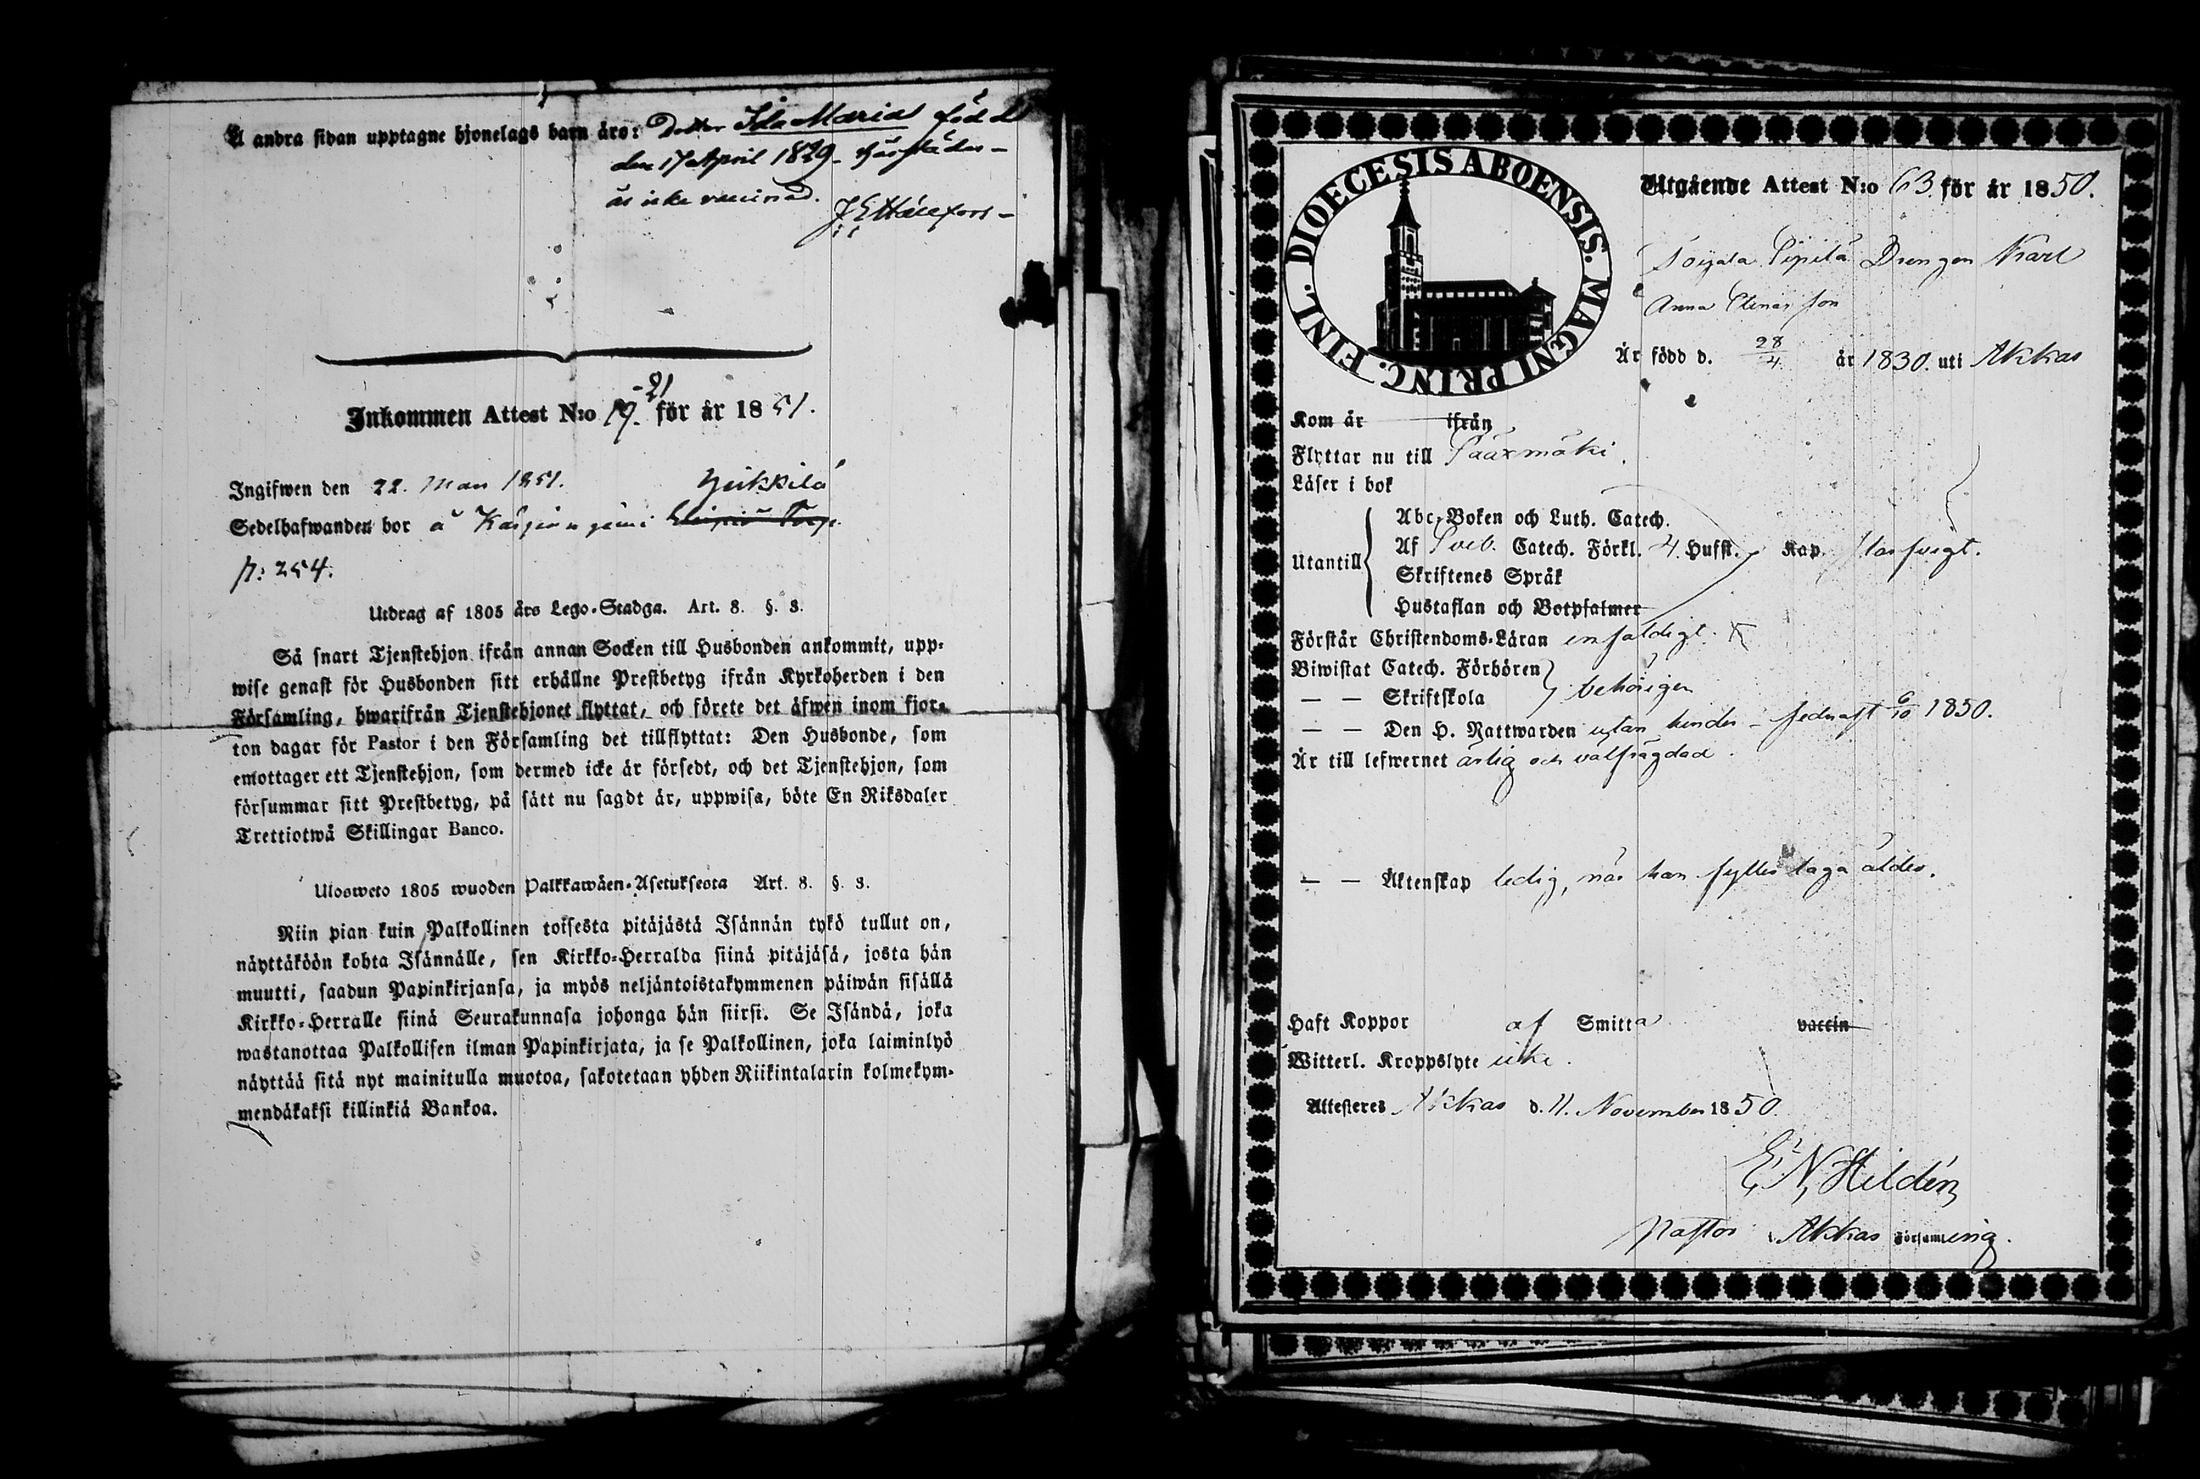 Å andra sidan upptagne hjonelags barn äro: Dotter Ida Maria född
den 17 April 1829. härstädes
är icke vaccinerad.
Inkommen Attest N:o 19-21 för år 1851.
Ingifwen den 22. Mars 1851.
Sedelhafwanden bor å
p: 254.
Utdrag af 1805 års Lego-Stadga. Art. 8. §. 8.
Så snart Tjenstehjon ifrån annan Socken till Husbonden ankommit, upp-
wise genast för Husbonden sitt erhållne Prestbetyg ifrån Kyrkoherden i den
Församling, hwarifrån Tjenstehjonet flyttat, och förete det äfwen inom fjor-
ton dagar för Pastor i den Församling det tillflyttat: Den Husbonde, som
emottager ett Tjenstehjon, som dermed icke är försedt, och det Tjenstehjon, som
försummar sitt Prestbetyg, på sätt nu sagdt är, uppwisa, böte En Riksdaler
Trettiotwå Skillingar Banco.
Ulosweto 1805 wuoden Palkkawäen-Asetuksesta Art. 8. §. 8.
Niin pian kuin Palkollinen toisesta pitäjästä Isännän tykö tullut on,
näyttäköön kohta Isännälle, sen Kirkko-Herralda siinä pitäjäsä, josta hän
muutti, saadun Papinkirjansa, ja myös neljäntoistakymmenen päiwän sisällä
Kirkko-Herralle siinä Seurakunnasa johonga hän siirsi. Se Isändä, joka
wastanottaa Palkollisen ilman Papinkirjata, ja se Palkollinen, joka laiminlyö
näyttää sitä nyt mainitulla muotoa, sakotetaan yhden Riikintalarin kolmekym-
mendäkaksi killinkiä Bankoa.
DIOECESIS ABOENSIS. MAGNI PRINC. FINL.
Utgående Attest N:o 63 för år 1850.
Toijala Pipilä Drengen Karl
Anna Elenas son
Är född d. 28/4 år 1830. uti Akkas
Kom år ifrån
Flyttar nu till Sääxmäki.
Läser i bok
Utantill
Abc-Boken och Luth. Catech.
Af Sveb. Catech. Förkl. 4 Hufst. Kap.
Skriftenes Språk
Hustaflan och Botpsalmer
Förstår Christendoms-Läran enfaldigt.
Biwistat Catech. Förhören
— — Skriftskola behörigen
— — Den H. Nattwarden utan hinder - sednast 6/10 1850.
Är till lefwernet ärlig och välfrägdad.
— — Äktenskap ledig, när han fyller laga ålder.
Haft Koppor af Smitta vaccin
Witterl. Kroppslyte icke.
Attesteres Akkas d. 11. November 1850.
E. N. Hildén
Pastor i Akkas Församling.